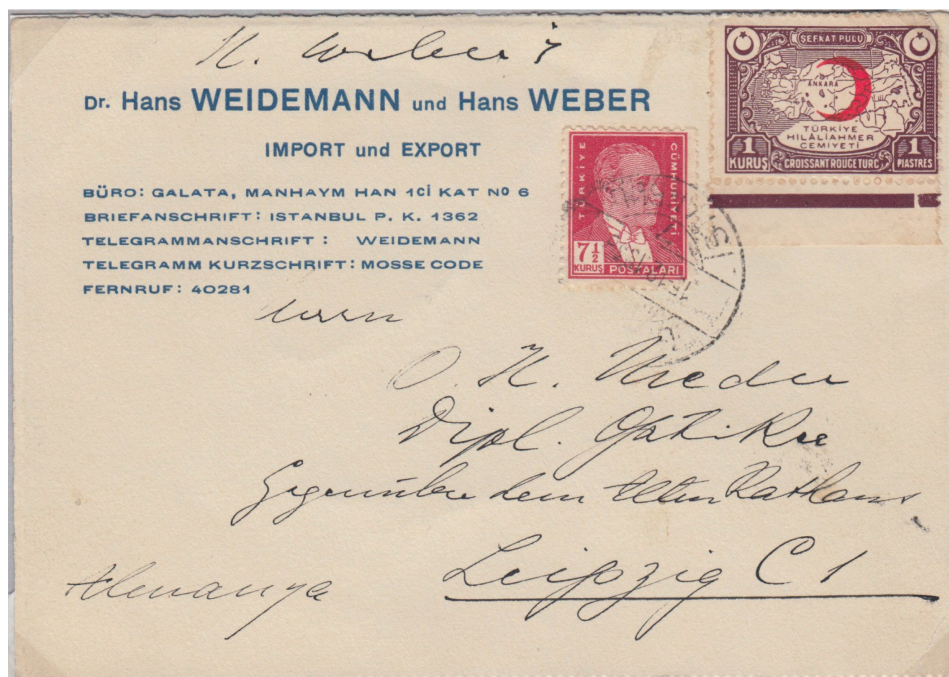 H. Weber
Dr. Hans WEIDEMANN und Hans WEBER
IMPORT und EXPORT
BÜRO: GALATA, MANHAYM HAN 1Cİ KAT Nº 6
BRIEFANSCHRIFT: ISTANBUL P. K. 1362
TELEGRAMMANSCHRIFT: WEIDEMANN
TELEGRAMM KURZSCHRIFT: MOSSE CODE
FERNRUF: 40281
ŞEFKAT PULU
ANKARA
TÜRKİYE
HİLÂLİAHMER
CEMİYETİ
1 KURUŞ CROISSANT ROUGE TURC 1 PIASTRES
TÜRKİYE CÜMHURİYETİ
7½ KURUŞ POSTALARI
Herrn
O. H.
Dipl. Optiker
Gegenüber dem Alten Rathaus
Leipzig C 1
Almanya